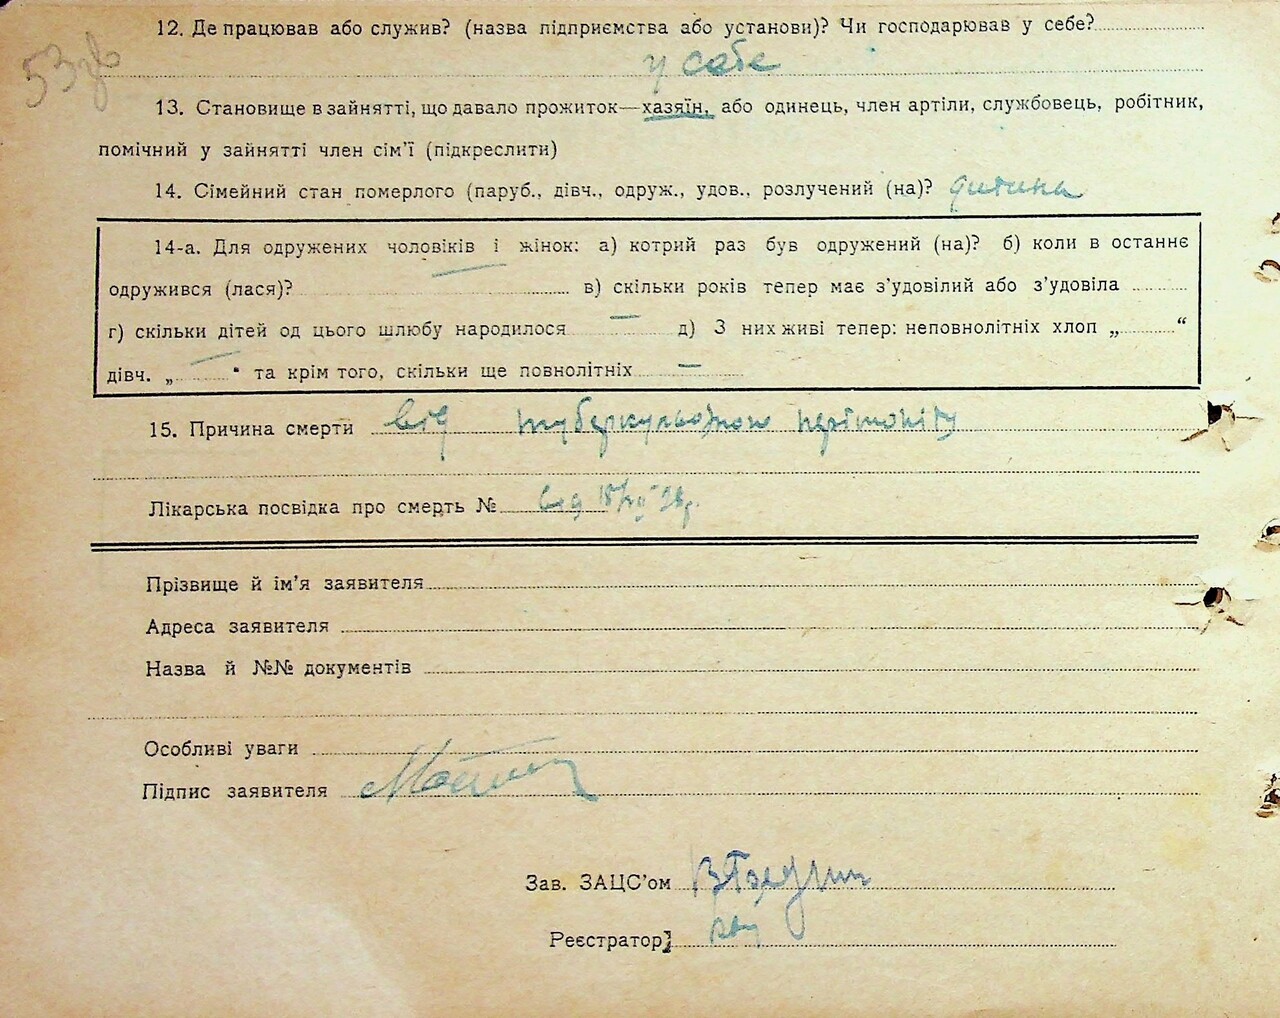 53зв
12. Де працював або служив? (назва підприємства або установи)? Чи господарював у себе?
у себе
13. Становище в зайнятті, що давало прожиток—хазяїн, або одинець, член артіли, службовець, робітник,
помічний у зайнятті член сім’ї (підкреслити)
14. Сімейний стан померлого (паруб., дівч., одруж., удов., розлучений (на)? дитина
14-а. Для одружених чоловіків і жінок: а) котрий раз був одружений (на)? б) коли в останнє
одружився (лася)? в) скільки років тепер має з’удовілий або з’удовіла
г) скільки дітей од цього шлюбу народилося — д) З них живі тепер: неповнолітніх хлоп „ “
дівч. „ — “ та крім того, скільки ще повнолітніх —
15. Причина смерти від туберкульозного перітоніту
Лікарська посвідка про смерть № від 15/VII 28р.
Прізвище й ім’я заявителя
Адреса заявителя
Назва й №№ документів
Особливі уваги
Підпис заявителя
Зав. ЗАЦС’ом
Реєстратор